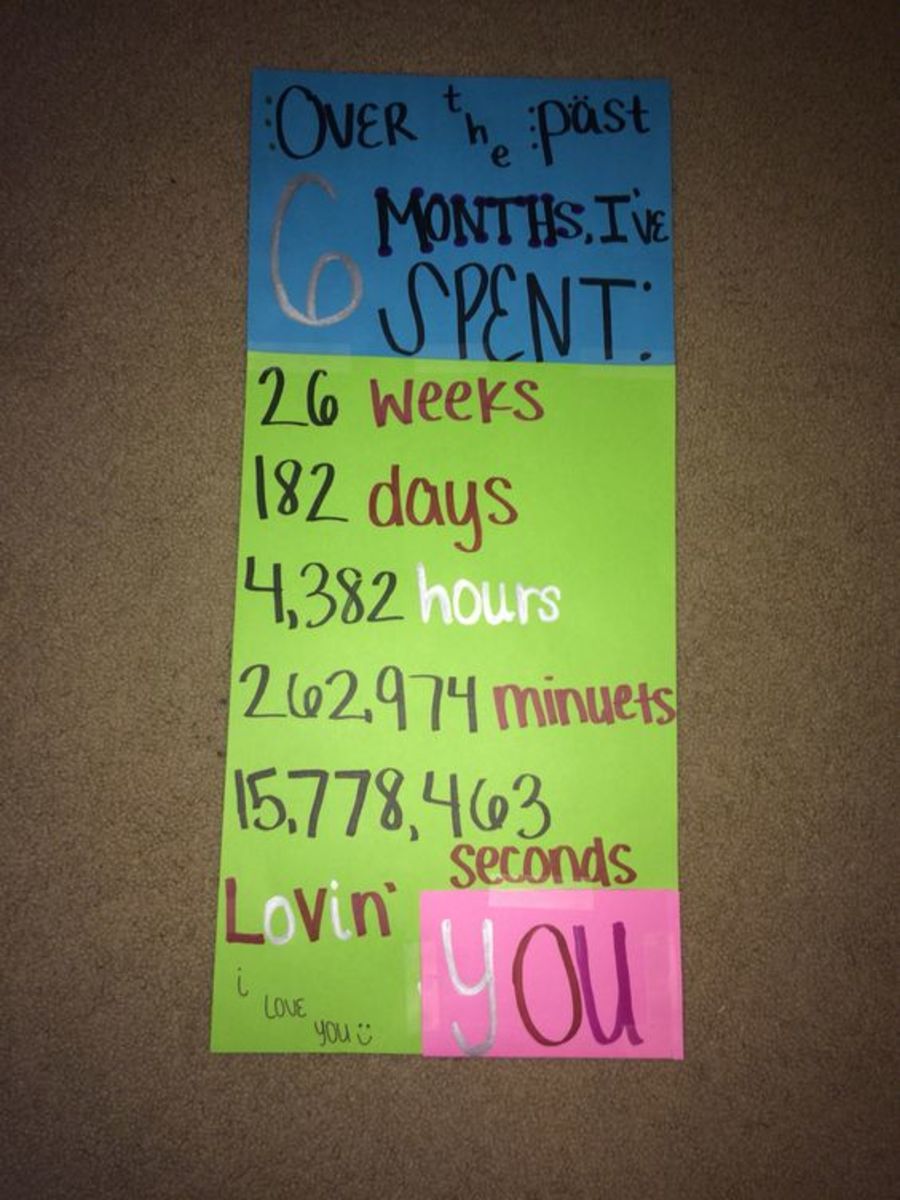 :OVER the :päst
6 MONTHS, I'VE
SPENT:
26 weeks
182 days
4,382 hours
262,974 minuets
15,778,463
seconds
Lovin'
YOU
i
LOVE
YOU :)